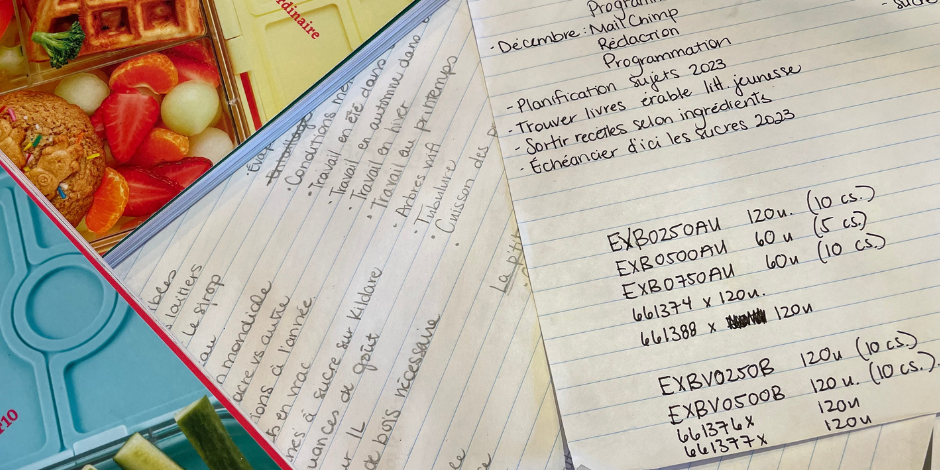 rdinaire
r10
Conditions
Travail en été dans
Travail en automne dans
Travail en hiver
Travail au printemps
Arbres
Tubulure
Cuisson des
laitiers
le sirop
mondiale
acre vs autre
à l'année
en vrac
à sucre sur Kildare
de goût
1L
de bois nécessaire
La
· Décembre : MailChimp
Rédaction
Programmation
- Planification sujets 2023
- Trouver livres érable litt. jeunesse
- Sortir recettes selon ingrédients
- Échéancier d'ici les sucres 2023
EXB0250AU 120u. (10 cs.)
EXB0500AU 60u (5 cs.)
EXB0750AU 60u (10 cs.)
661374 x 120u.
661388 x 120u
EXBV0250B 120u (10 cs.)
EXBV0500B 120u. (10 cs.)
661376x 120u
661377x 120u